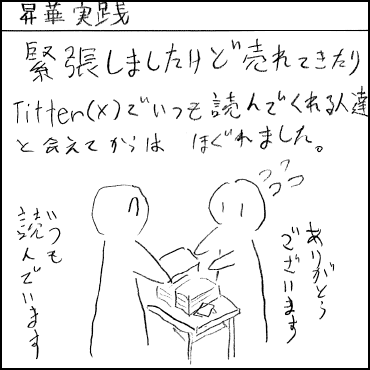 昇華実践
緊張しましたけど売れてきたり
Titter(X)でいつも読んでくれる人達
と会えてからは ほぐれました。
ありがとう
ございます
いつも
読んでいます